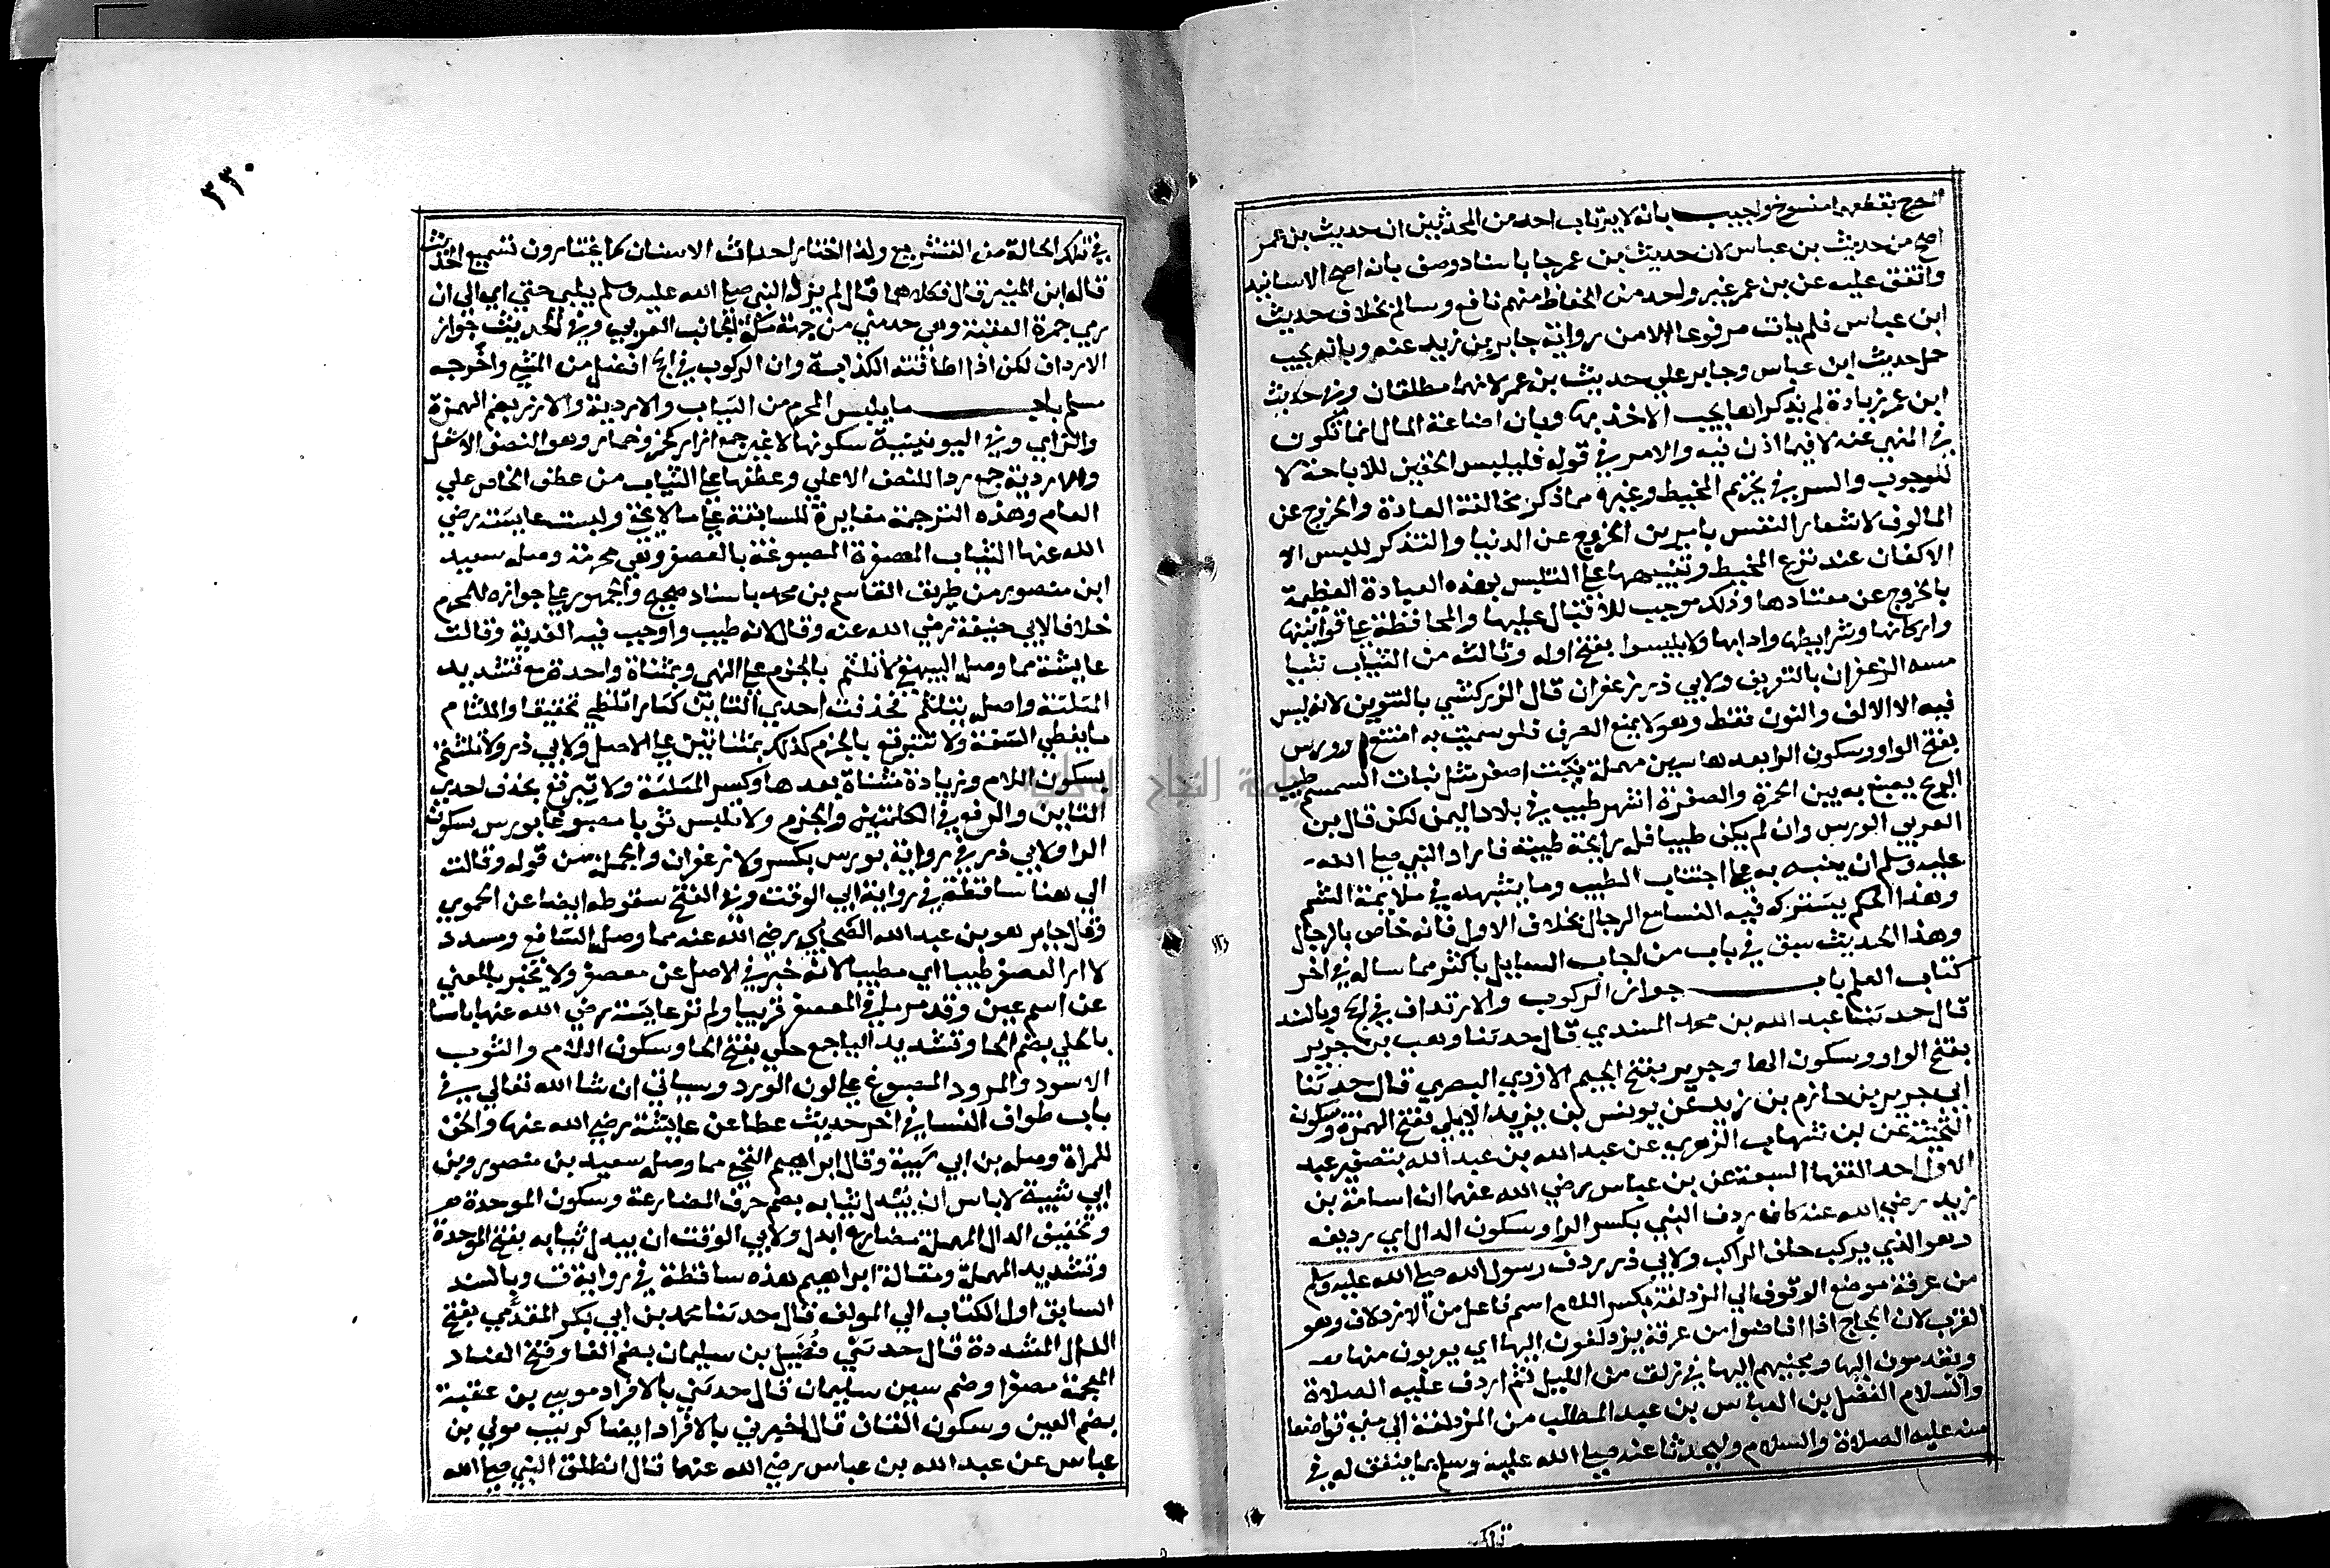 الحج بقطعهما منسوخ واجيب بانه لا يرتاب احد من المحدثين ان حديث بن عمر
اصح من حديث بن عباس لان حديث بن عمر جا باسناد وصف بانه اصح الاسانيد
واتفق عليه عن بن عمر غير واحد من الحفاظ منهم نافع وسالم بخلاف حديث
ابن عباس فلم يات مرفوعا الا من رواية جابر بن زيد عنه وبانه يجب
حمل حديث ابن عباس وجابر علي حديث بن عمر لانهما مطلقان وفي حديث
ابن عمر زيادة لم يذكراها يجب الاخذ بها وبان اضاعة المال انما تكون
في المنهي عنه لا فيما اذن فيه والامر في قوله فليلبس الخفين للاباحة لا
للوجوب والسر في تحريم المخيط وغيره مما ذكر مخالفة العادة والخروج عن
المالوف لاشعار النفس بامرين الخروج عن الدنيا والتذكر للبس الا
الاكفان عند نزع المخيط وتنبيهها علي التلبس بهذه العبادة العظيمة
بالخروج عن معتادها وذلك موجب للاقبال عليها والمحافظة علي قوانينها
واركانها وشرايطها وادابها ولا يلبسوا بفتح اوله وثالثه من الثياب شيا
مسه الزعفران بالتعريف ولابي ذر زعفران قال الزركشي بالتنوين لانه ليس
فيه الا الالف والنون فقط وهو لا يمنع الصرف فلو سميت به امتنع او ورس
بفتح الواو وسكون الرا بعدها سين مهملة نبت اصفر مثل نبات السمسم طيب
الريح يصبغ به بين الحمرة والصفرة اشهر طيب في بلاد اليمن لكن قال بن
العربي الورس وان لم يكن طيبا فله رايحة طيبة فاراد النبي صلى الله
عليه وسلم ان ينبه به علي اجتناب الطيب وما يشبهه في ملايمة الشم
وهذا الحكم يشترك فيه النسا مع الرجال بخلاف الاول فانه خاص بالرجال
وهذا الحديث سبق في باب من اجاب السايل باكثر مما ساله في اخر
كتاب العلم باب جواز الركوب والارتداف في الحج وبالسند
قال حدثنا عبد الله بن محمد المسندي قال حدثنا وهب بن جرير
بفتح الواو وسكون الها وجرير بفتح الجيم الازدي البصري قال حدثنا
ابي جرير بن حازم بن زيد عن يونس بن يزيد الايلي بفتح الهمزة وسكون
التحتية عن بن شهاب الزهري عن عبد الله بن عبد الله بتصغير عبد
الاول احد الفقها السبعة عن بن عباس رضي الله عنهما ان اسامة بن
زيد رضي الله عنه كان ردف النبي بكسر الرا وسكون الدال اي رديفه
وهو الذي يركب خلف الراكب ولابي ذر ردف رسول الله صلي الله عليه وسلم
من عرفة موضع الوقوف الي المزدلفة بكسر اللام اسم فاعل من الازدلاف وهو
القرب لان الحجاج اذا افاضوا من عرفة يزدلفون اليها اي يقربون منها
ويقدمون اليها ومجيئهم اليها في زلف من الليل ثم اردف عليه الصلاة
والسلام الفضل بن العباس بن عبد المطلب من المزدلفة الي مني تواضعا
منه عليه الصلاة والسلام وليحدثا عنه صلي الله عليه وسلم بما يتفق له في
تلك
٣٣٠
في تلك الحالة من التشريع ولذا اختار احداث الاسنان كما يختارون تسميع الحديث
قاله ابن المنير قال فكلاهما قال لم يزل النبي صلي الله عليه وسلم يلبي حتي اي الي ان
رمي جمرة العقبة وهي حد مني من جهة مكة لجانب الغربي وفي الحديث جواز
الارداف لكن اذا اطاقته الدابة وان الركوب في الحج افضل من المشي واخرجه
مسلم باب ما يلبس المحرم من الثياب والاردية والازر بضم الهمزة
والزاي وفي اليونينية سكونها لا غير جمع ازار كخمر وخمار وهو النصف الاسفل
والاردية جمع ردا للنصف الاعلي وعطفها علي الثياب من عطف الخاص علي
العام وهذه الترجمة مغايرة للسابقة علي ما لا يخفي ولبست عايشة رضي
الله عنها الثياب المعصفرة المصبوغة بالعصفر وهي محرمة وصله سعيد
ابن منصور من طريق القاسم بن محمد باسناد صحيح والجمهور علي جوازه للمحرم
خلافا لابي حنيفة رضي الله عنه وقال لانه طيب واوجب فيه الفدية وقالت
عايشة مما وصله البيهقي لا تلثم بالجزم علي النهي وبمثناة واحدة مع تشديد
المثلثة واصله تتلثم فحذفت احدي التاين كنارا تلظي تخفيفا واللثام
ما يغطي الشفة ولا تتبرقع بالجزم كذلك بمثناتين علي الاصل ولابي ذر ولا تلتثم
بسكون اللام وزيادة مثناة بعدها وكسر المثلثة ولا تبرقع بحذف احدي
التاين والرفع في الكلمتين والجزم ولا تلبس ثوبا مصبوغا بورس بسكون
الرا ولابي ذر في رواية بورس بكسر ولا زعفران والجملة من قوله وقالت
الي هنا ساقطة في رواية ابي الوقت وفي الفتح سقوطه ايضا عن الحموي
وقال جابر هو بن عبد الله الصحابي رضي الله عنه مما وصله الشافعي ومسدد
لا ارا العصفر طيبا اي مطيبا لانه خبر في الاصل عن معصفر ولا يخبر بالمعني
عن اسم عين وقد مر سلم في المعصفر قريبا ولم تر عايشة رضي الله عنها باسا
بالحلي بضم الحا وتشديد اليا جمع حلي بفتح الحا وسكون اللام والثوب
الاسود والمورد المصبوغ علي لون الورد وسياتي ان شا الله تعالي في
باب طواف النسا في اخر حديث عطا عن عايشة رضي الله عنها والخف
للمراة وصله بن ابي شيبة وقال ابراهيم النخعي مما وصله سعيد بن منصور وبن
ابي شيبة لا باس ان يبدل ثيابه بضم حرف المضارعة وسكون الموحدة
وتخفيف الدال المهملة مضارع ابدل ولابي الوقت ان يبدل ثيابه بفتح الموحدة
وتشديد المهملة ومقالة ابراهيم هذه ساقطة في رواية ت وبالسند
السابق اول الكتاب الي المولف قال حدثنا محمد بن ابي بكر المقدمي بفتح
الدال المشددة قال حدثني فضيل بن سليمان بضم الفا وفتح الضاد
المعجمة مصغرا وضم سين سليمان قال حدثني بالافراد موسي بن عقبة
بضم العين وسكون القاف قال اخبرني بالافراد ايضا كريب مولي بن
عباس عن عبد الله بن عباس رضي الله عنهما قال انطلق النبي صلي الله